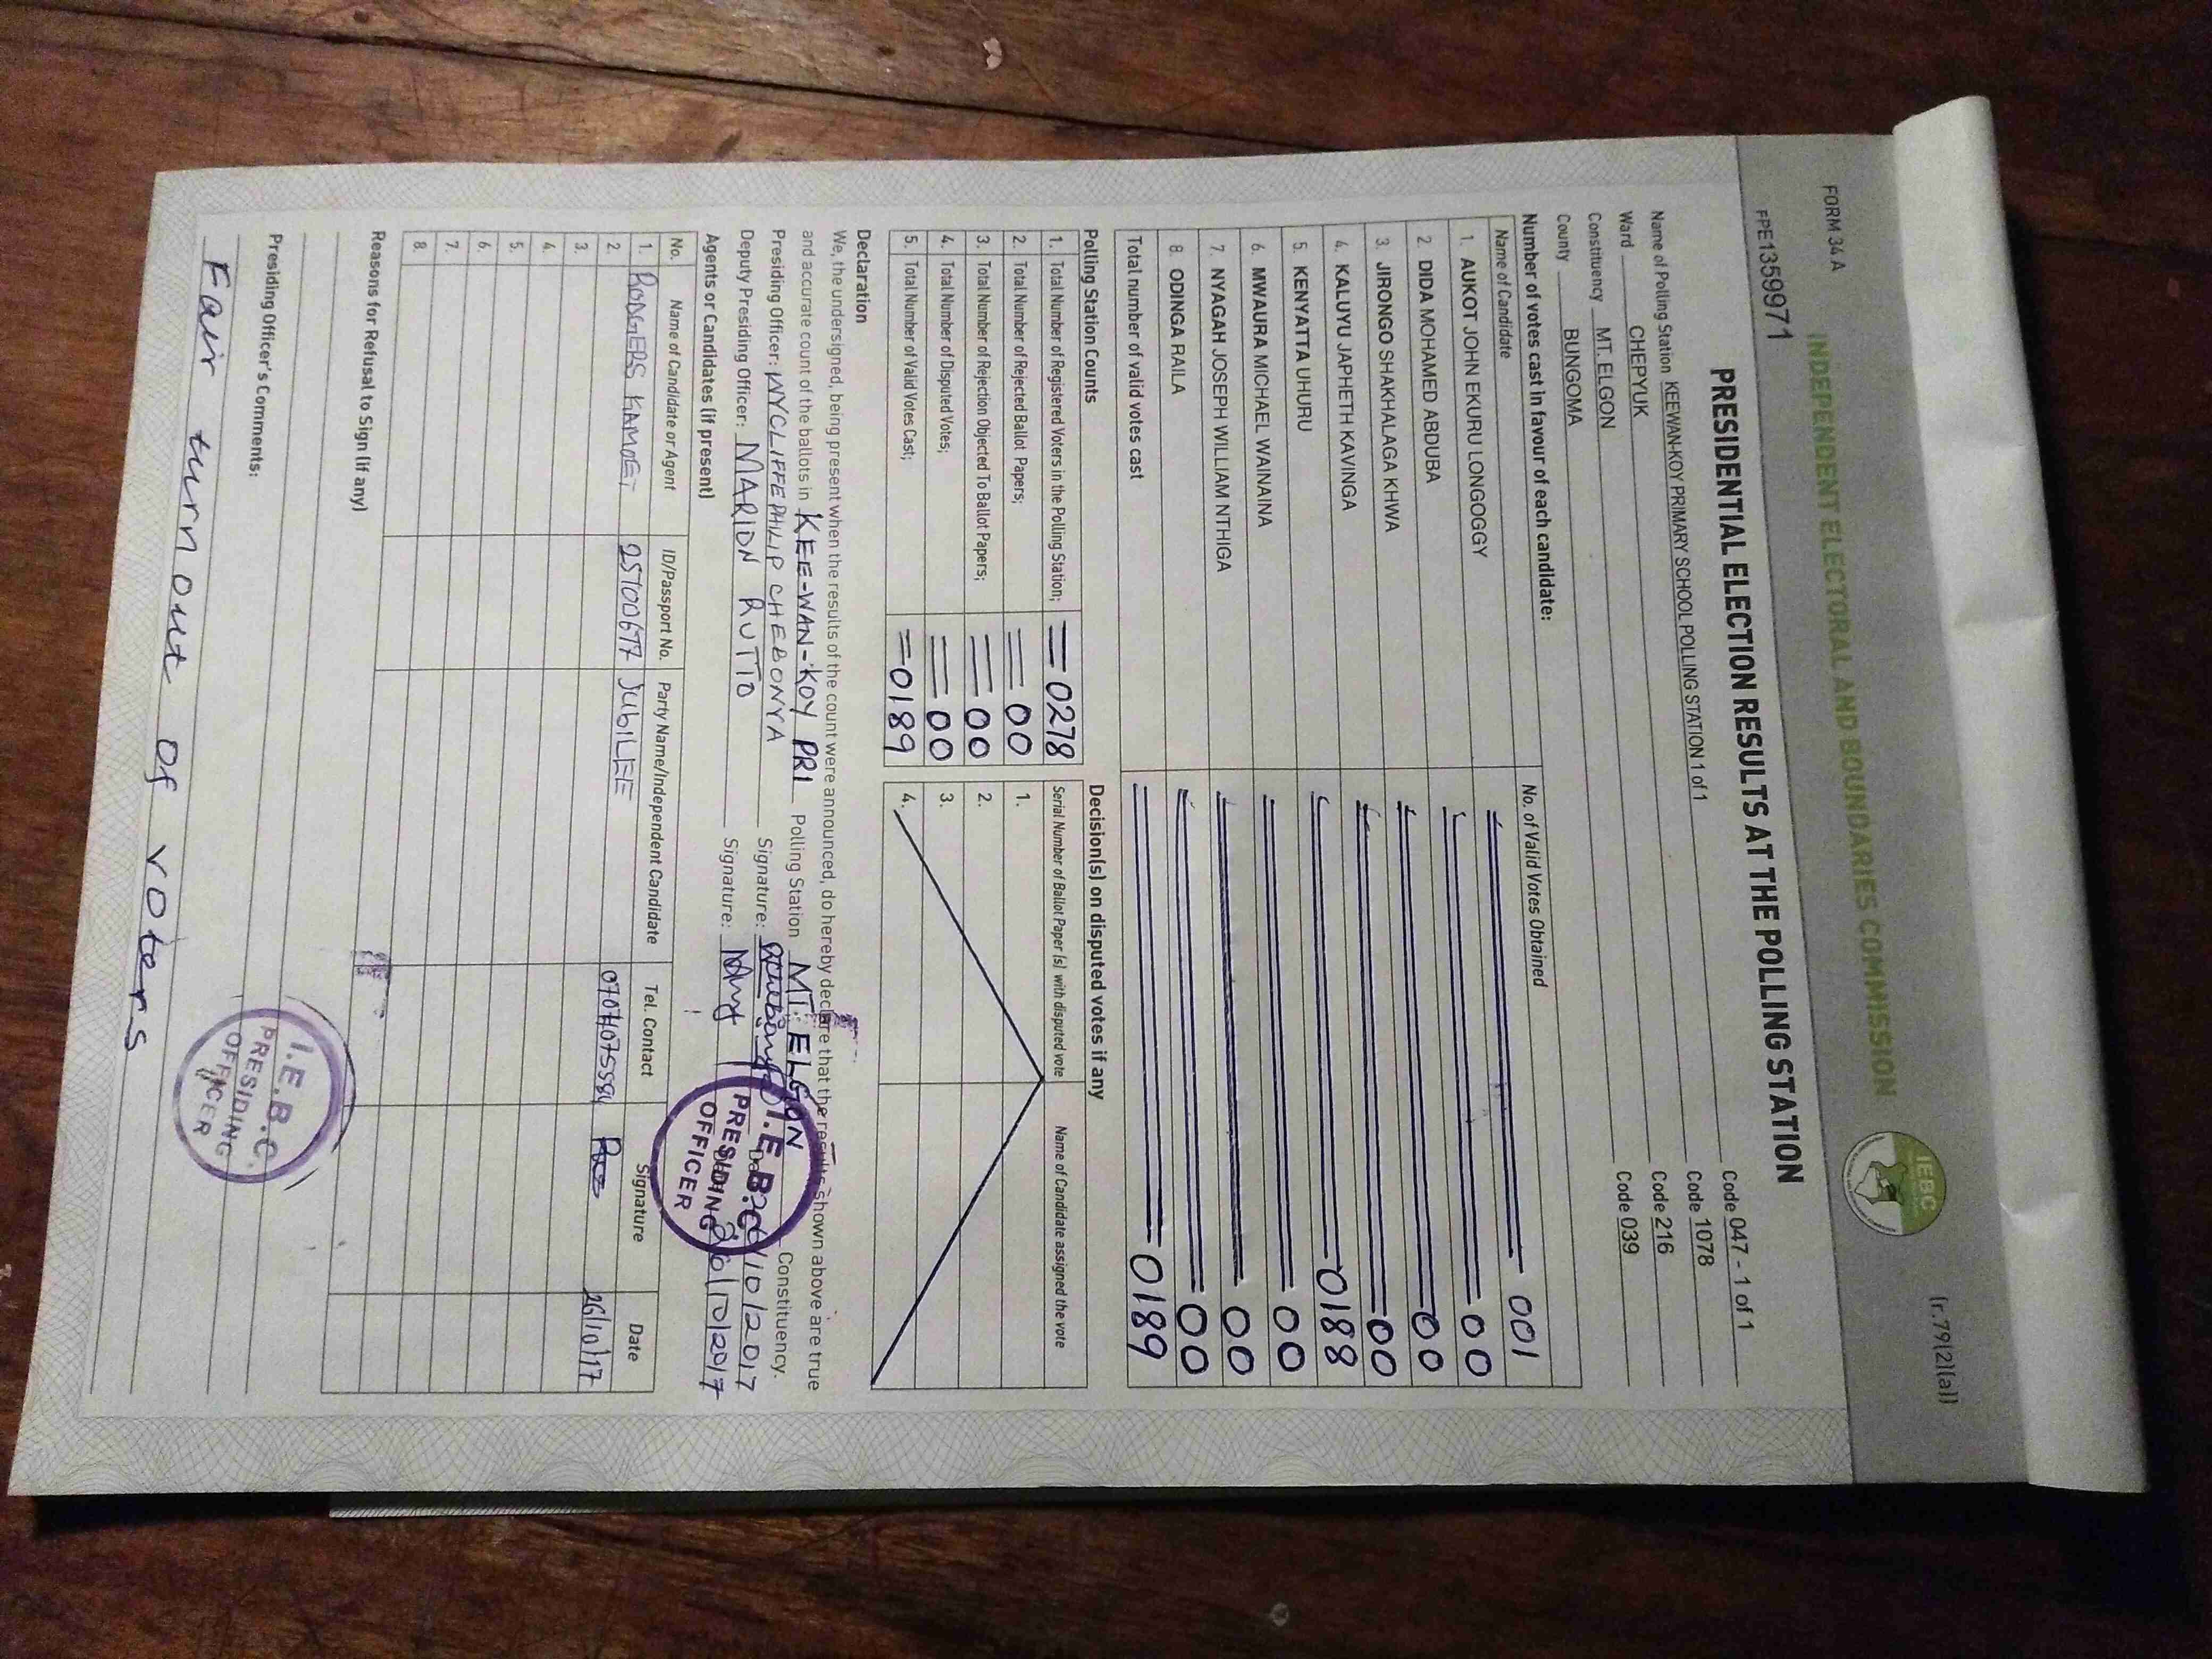 FORM 34 A
(r.79(2)(a))
INDEPENDENT ELECTORAL AND BOUNDARIES COMMISSION
IEBC
FPE1359971
PRESIDENTIAL ELECTION RESULTS AT THE POLLING STATION
Name of Polling Station KEEWAN-KOY PRIMARY SCHOOL POLLING STATION 1 of 1 Code 047 - 1 of 1
Ward CHEPYUK Code 1078
Constituency MT. ELGON Code 216
County BUNGOMA Code 039
Number of votes cast in favour of each candidate:
Name of Candidate No. of Valid Votes Obtained
1. AUKOT JOHN EKURU LONGOGGY 001
2. DIDA MOHAMED ABDUBA 00
3. JIRONGO SHAKHALAGA KHWA 00
4. KALUYU JAPHETH KAVINGA 00
5. KENYATTA UHURU 0188
6. MWAURA MICHAEL WAINAINA 00
7. NYAGAH JOSEPH WILLIAM NTHIGA 00
8. ODINGA RAILA 00
Total number of valid votes cast 0189
Polling Station Counts
1. Total Number of Registered Voters in the Polling Station; =0278
2. Total Number of Rejected Ballot Papers; =00
3. Total Number of Rejection Objected To Ballot Papers; =00
4. Total Number of Disputed Votes; =00
5. Total Number of Valid Votes Cast; =0189
Decision(s) on disputed votes if any
Serial Number of Ballot Paper (s) with disputed vote Name of Candidate assigned the vote
1.
2.
3.
4.
Declaration
We, the undersigned, being present when the results of the count were announced, do hereby declare that the results shown above are true
and accurate count of the ballots in KEE-WAN-KOY PRI Polling Station MT. ELGON Constituency.
Presiding Officer: WYCLIFFE PHILIP CHEBONYA Signature: /10/2017
Deputy Presiding Officer: MARION RUTTO Signature: 26/10/2017
I.E.B.C
PRESIDING
OFFICER
Agents or Candidates (if present)
No. Name of Candidate or Agent ID/Passport No. Party Name/Independent Candidate Tel. Contact Signature Date
1. RODGERS KAMOET 25700677 JUBILEE 0707407558 26/10/17
2.
3.
4.
5.
6.
7.
8.
Reasons for Refusal to Sign (if any)
Presiding Officer's Comments:
Fair turn out of voters
I.E.B.C.
PRESIDING
OFFICER